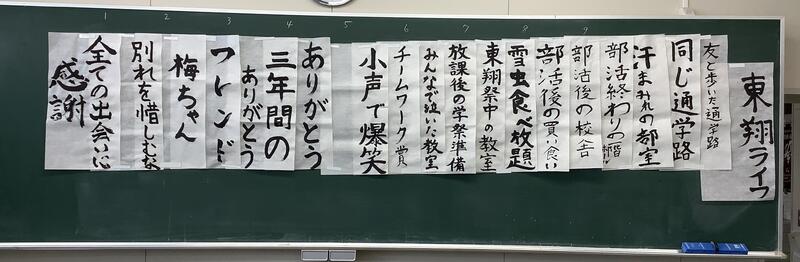 東翔ライフ
友と歩いた通学路
同じ通学路
汗まみれの部室
部活終わりの
部活後の校舎
部活後の買い食い
雪虫食べ放題
東翔祭中の教室
放課後の学祭準備
みんなで泣いた教室
チームワーク賞
小声で爆笑
ありがとう
三年間の
ありがとう
フレンド
梅ちゃん
別れを惜しむな
全ての出会いに
感謝
1
2
3
4
5
6
7
8
9